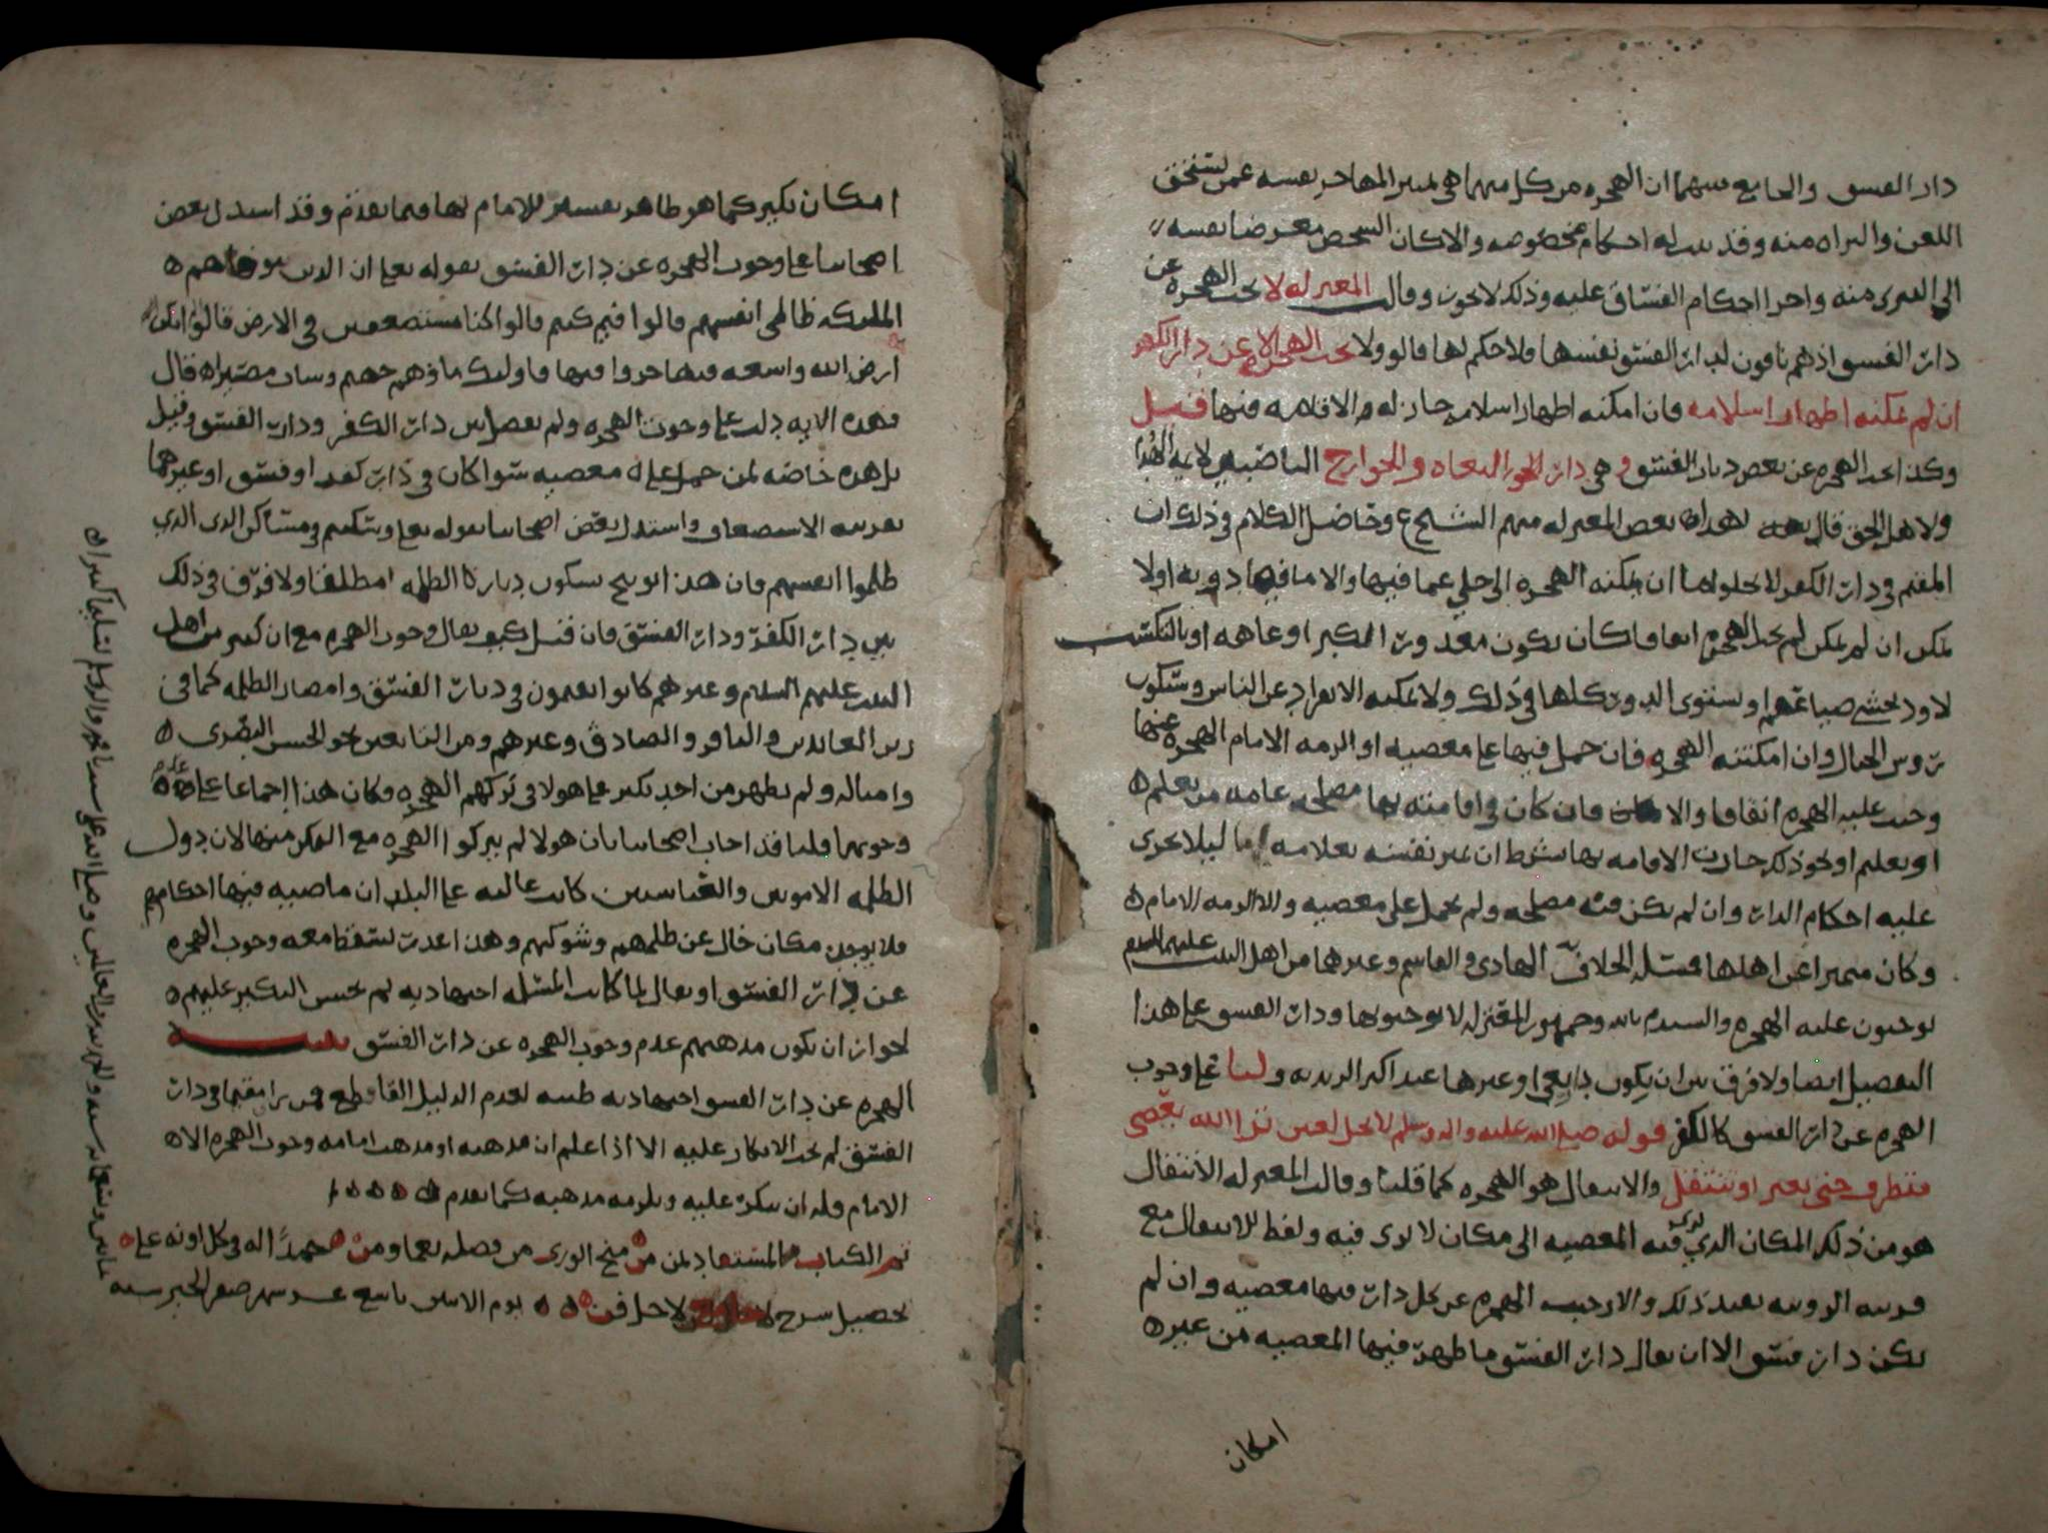 دار الفسق والجامع بينهما ان الهجره من كل منهما هي لتميز المهاجر بنفسه عمن يستحق
اللعن والبراه منه وقد بينت له احكام مخصوصه والا كان الشخص معرضا نفسه
الى التبرى منه واجرا احكام الفساق عليه وذلك لا يجوز وقالت المعتزله لا تجب الهجره عن
دار الفسق اذ هم نافون لدار الفسق نفسها فلا حكم لها قالوا ولا تجب الهجره الا عن دار الكفر
ان لم يمكنه اظهار اسلامه فان امكنه اظهار اسلامه جاز له الاقامه فيها قيل
وكذا تجب الهجره عن بعض ديار الفسق وهي دار البغاه والخوارج الناصبين لايمه الهدا
ولاهل الحق قال بهذا بعض المعتزله منهم الشيخ ع وحاصل الكلام في ذلك ان
المقيم في دار الكفر لا يخلو اما ان يمكنه الهجره الى خلي عما فيها والا ما فيها دونه او لا
يمكن ان لم يمكن لم تجب الهجره اتفاقا كان يكون معذورا لكبر او عاهه او بالتكسب
لاولاد يخشى ضياعهم او تستوى الدور كلها في ذلك ولا يمكنه الانفراد عن الناس وسكون
روس الجبال وان امكنته الهجره فان حمل فيها على معصيه او الزمه الامام الهجره عنها
وجبت عليه الهجره اتفاقا والا فان كان في اقامته بها مصلحه عامه من تعلم
او تعليم او نحو ذلك جازت الاقامه بها بشرط ان يميز نفسه بعلامه ما ليلا تجرى
عليه احكام الدار وان لم يكن فيه مصلحه ولم يحمل على معصيه ولا الزمه الامام
وكان متميزا عن اهلها فمسئله الخلاف الهادى والقاسم وغيرهما من اهل البيت عليهم السلم
يوجبون عليه الهجره والسيد م بالله وجمهور المعتزله لا يوجبونها ودار الفسق على هذا
التفصيل ايضا ولا فرق بين ان يكون باغي او غيرها عند اكثر الزيديه ولنا على وجوب
الهجره عن دار الفسق كالكفر قوله صلى الله عليه واله وسلم لا يحل لعين ترا الله يعصى
فتطرف حتى تغير او تنتقل والانتقال هو الهجره كما قلنا وقالت المعتزله الانتقال
هو من ذلك المكان الذي ترى فيه المعصيه الى مكان لا ترى فيه ولفظ الانتقال مع
قرينه الرويه يفيد ذلك والا وجبت الهجره عن كل دار فيها معصيه وان لم
تكن دار فسق الا ان يقال دار الفسق ما ظهرت فيها المعصيه من غير
امكان
امكان نكير كما هو ظاهر تفسير الامام لها فيما تقدم وقد استدل بعض
اصحابنا على وجوب الهجره عن دار الفسق بقوله تعلى ان الذين توفاهم
الملايكه ظالمى انفسهم قالوا فيم كنتم قالوا كنا مستضعفين في الارض قالوا الم تكن
ارض الله واسعه فتهاجروا فيها فاوليك ماواهم جهنم وسات مصيرا قال
فهذه الايه دلت على وجوب الهجره ولم تفصل بين دار الكفر ودار الفسق وقيل
بل هذه خاصه لمن حمل على معصيه سوا كان في دار كفر او فسق او غيرهما
بقرينه الاستضعاف واستدل بعض اصحابنا بقوله تعلى وسكنتم في مساكن الذين
ظلموا انفسهم فان هذا توبيخ بسكون ديار الظلمه مطلقا ولا فرق في ذلك
بين دار الكفر ودار الفسق فان قيل كيف يقال وجوب الهجره مع ان كثير من اهل
البيت عليهم السلم وغيرهم كانوا يقيمون في ديار الفسق وامصار الظلمه كما في
زين العابدين والباقر والصادق وغيرهم ومن التابعين نحو الحسن البصرى
وامثاله ولم يظهر من احد نكير على هولا في تركهم الهجره فكان هذا اجماعا على عدم
وجوبها قلنا قد اجاب اصحابنا بان هولا لم يتركوا الهجره مع التمكن منها لان دول
الظلمه الامويين والعباسيين كانت غالبه على البلدان ماضيه فيها احكامهم
فلا يوجد مكان خال عن ظلمهم وشوكتهم وهذا عذر يسقط معه وجوب الهجره
عن دار الفسق او يقال لما كانت المسئله اجتهاديه لم يحسن النكير عليهم
لجواز ان يكون مذهبهم عدم وجوب الهجره عن دار الفسق تنبيه
الهجره عن دار الفسق اجتهاديه ظنيه لعدم الدليل القاطع فمن يرا مقيما في دار
الفسق لم يجز الانكار عليه الا اذا علم ان مذهبه او مذهب امامه وجوب الهجره الا
الامام فله ان ينكر عليه ويلزمه مذهبه كما تقدم
تم الكتاب المستعاد لمن منح الورى من فضله نعما ومن حمدا له في كل اونه على
تحصيل شرح يوم الاثنين تاسع عشر شهر صفر الخير سنه